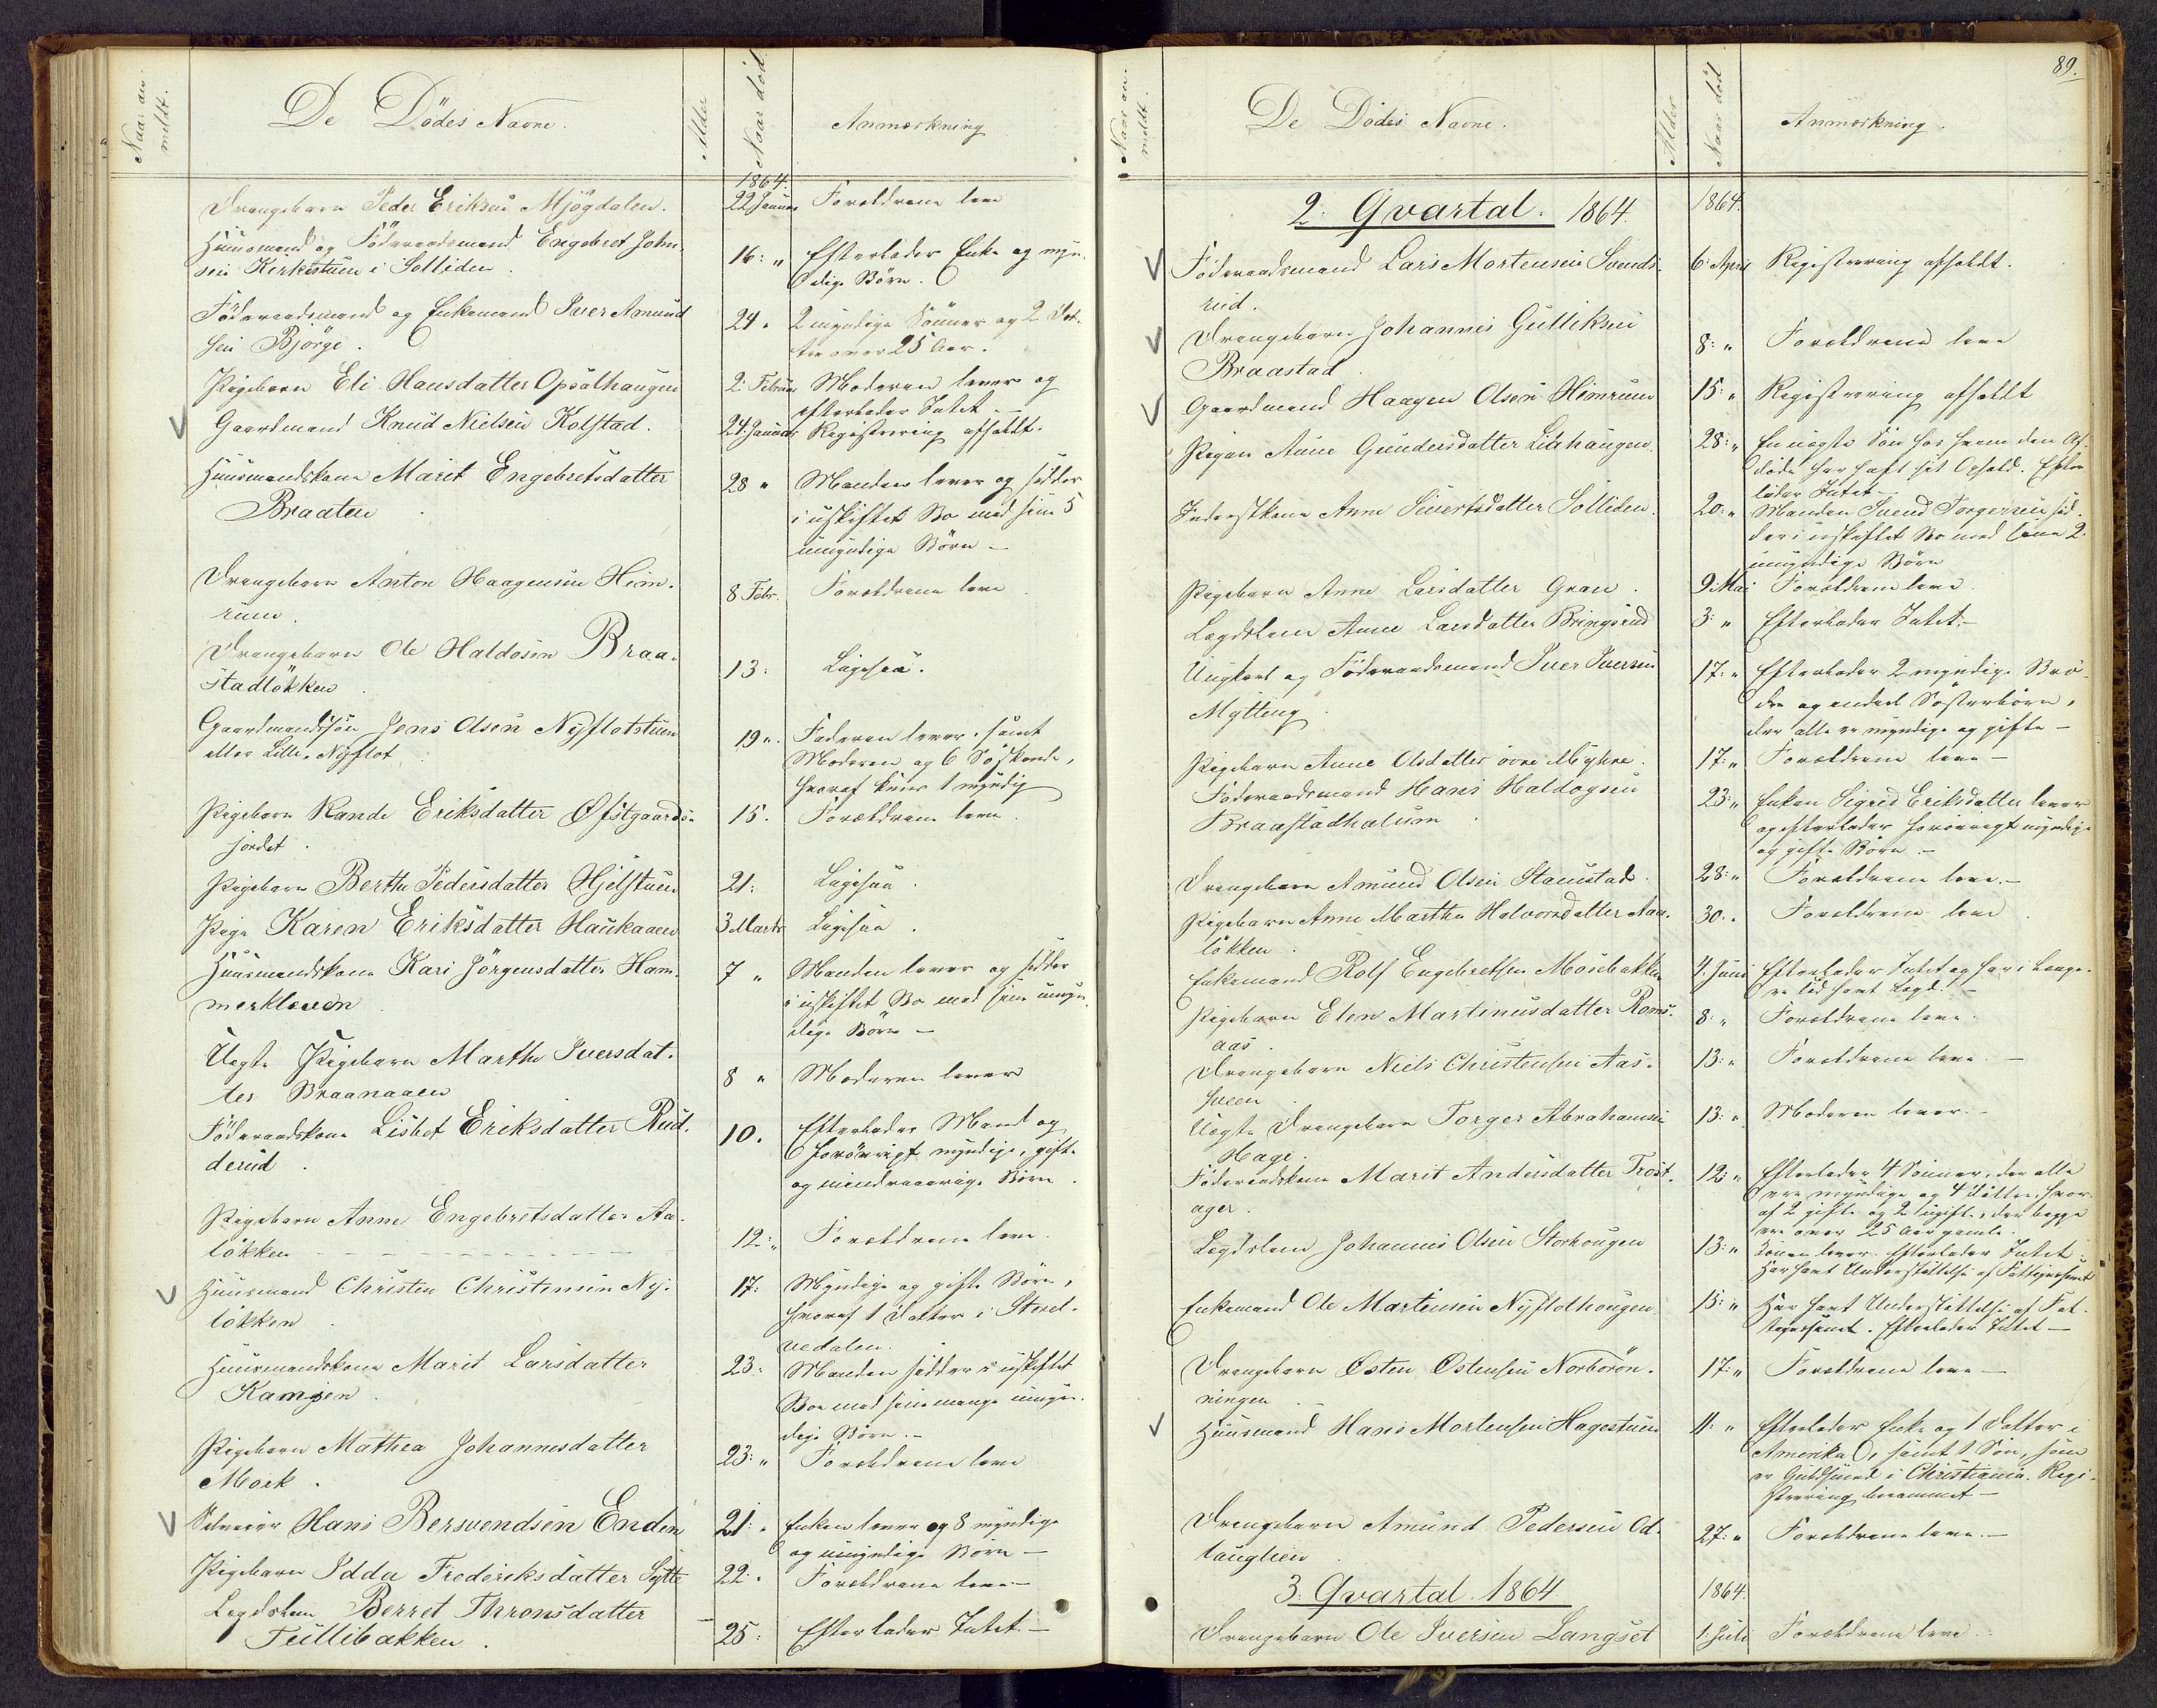 Naar an-
meldt.
De Dödes Navne.
Alder
Naar död.
Anmærkning
1864.
Drengebarn Peder Eriksen Mjøgdalen.
22 Januar Forældrene leve
Huusmand og Föderaadsmand Engebret John-
sen Kirkestuen i Solliden.
16: " Efterlader Enke og myn-
dige Börn.
Föderaadsmand og Enkemand Iver Amund
sen Bjørge.
24 " 2 myndige Sönner og 2 Döt-
tre over 25 Aar.
Pigebarn Eli Hansdatter Opsalhaugen
2. Februar Moderen lever og
efterlader Intet.-
V Gaardmand Knud Nielsen Kolstad.
24. Januar Registrering afholdt.
Huusmandskone Marit Engebretsdatter
Braaten.
28 " Manden lever og sidder
i uskiftet Bo med sine 5
umyndige Börn -
Drengebarn Anton Haagensen Him-
rum.
8 Febr. Forældrene leve
Drengebarn Ole Haldosen Braa-
stadløkken
13: Ligesaa.
Gaardmandssön Jens Olsen Nyflotstuen
eller Lille-Nyflot
19 " Faderen lever, samt
Moderen og 6 Söskende,
hvoraf kuns 1 myndig
Pigebarn Rande Eriksdatter Øfstgaards-
jordet.
15. Forældrene leve.
Pigebarn Berthe Pedersdatter Hjelstuen
21: Ligesaa.
Pige Karen Eriksdatter Haukaaen
3 Marts Ligesaa.
Huusmandskone Kari Jörgensdatter Ham-
merkleven
7 " Manden lever og sidder
i uskiftet Bo med sine umyn-
dige Börn -
Uægte Pigebarn Marthe Iversdat-
ter Braanaaen
8 " Moderen lever
Föderaadskone Lisbet Eriksdatter Rud-
derud.
10. Efterlader Mand og
forövrigt myndige, gifte
og mindreaarige Börn.
Pigebarn Anne Engebretsdatter Aa-
løkken
12: " Forældrene leve.
V Huusmand Christen Christensen Ny-
løkken.
17: Myndige og gifte Börn,
hvoraf 1 Datter i Storel-
vedalen.
Huusmandskone Marit Larsdatter
Kampen.
23: Manden sidder i uskiftet
Boe med sine mange umyn-
dige Börn.-
Pigebarn Mathea Johannesdatter
Moek.
23: " Forældrene leve
V Selveier Hans Bersvendsen Enden
21: " Enken lever og 8 myndige
og umyndige Börn -
Pigebarn Idda Frederiksdatter Sytte
22: " Forældrene leve -
Lægdslem Berret Thronsdatter
Tullibakken.
25: Efterlader Intet -
89.
Naar an-
meldt.
De Dödes Navne.
Alder
Naar död
Anmærkning.
2: Qvartal. 1864.
1864.
V Föderaadsmand Lars Mortensen Svends-
rud.
6: April Registrering afholdt.
V Drengebarn Johannes Gulliksen
Braastad.
8: " Forældrene leve
V Gaardmand Haagen Olsen Himrum
15: " Registrering afholdt
Pigen Anne Gundersdatter Liahaugen.
28: " En uægte Sön hos hvem den Af-
döde har havt sit Ophold. Efter-
lader Intet -
Inderstkone Anne Sivertsdatter Solliden.
20: " Manden Svend Torgersen sid-
der i uskiftet Bo med sine 2
umyndige Börn
Pigebarn Anne Larsdatter Gran.
9: Mai Forældrene leve.
Lægdslem Anne Larsdatter Bringsrud
3: " Efterlader Intet.-
Ungkarl og Föderaadsmand Iver Iversen
Mytting.
17: " Efterlader 2 myndige Brö-
dre og endeel Søsterbörn,
der alle er myndige og gifte -
Pigebarn Anne Olsdatter övre Myhre.
17: " Forældrene leve -
Föderaadsmand Hans Haldogsen
Braastadhalum.
23: " Enken Sigrid Eriksdatter lever
og efterlader forövrigt myndige
og gifte Börn -
Drengebarn Amund Olsen Staustad.
28: " Forældrene leve.-
Pigebarn Anne Marthe Halvorsdatter Aaa-
løkken.
30. " Forældrene leve.
Enkemand Rolf Engebretsen Mosebakken
4. Juni Efterlader Intet og har i Længe-
re Tid havt Lægd. -
Pigebarn Elen Martinusdatter Roms-
aas.
8: " Forældrene leve.
Drengebarn Niels Christensen Aas-
sveen
13: " Forældrene leve. -
Uægte Drengebarn Torger Abrahamsen
Hage.
13: " Moderen lever. -
Föderaadskone Marit Andersdatter Trost-
ager.
12: " Efterlader 4 Sönner, der alle
ere myndige og 4 Döttre, hvor-
af 2 gifte og 2 ugifte, der begge
ere over 25 Aar gamle.
Lægdslem Johannes Olsen Storhougen
13: " Konen lever. Efterlader Intet.
Har havt Understöttelse af Fattigvæsenet
Enkemand Ole Martinsen Nyflothougen.
15: " Har havt Understöttelse af Fat-
tigvæsenet. Efterlader Intet -
Drengebarn Østen Østensen Norbörön-
ningen.
17: " Forældrene leve -
V Huusmand Hans Mortensen Hagestuen
11: " Efterlader Enke og 1 Datter i
Amerika, samt 1 Sön, som
er Guldsmed i Christiania. Regi-
strering berammet -
Drengebarn Amund Pedersen Od-
lauglien.
27: " Forældrene leve. -
3. Qvartal 1864
1864
Drengebarn Ole Iversen Langset
1. Juli Forældrene leve.